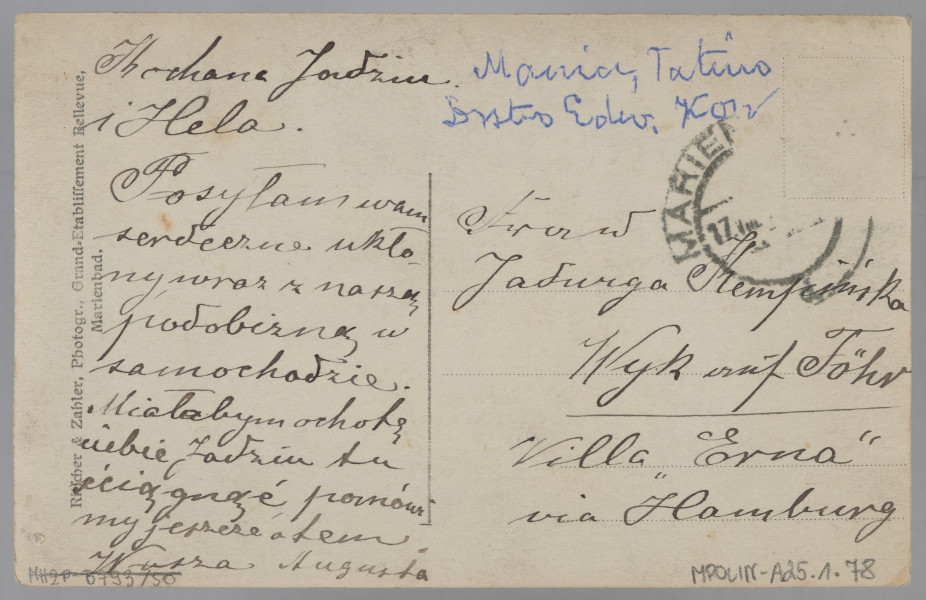 Kochana Jadziu
i Hela.
Posyłam wam
serdeczne ukło-
ny wraz z naszą
podobizną w
samochodzie.
Miałabym ochotę
ciebie Jadziu tu
ściągnąć pomówi
my jeszcze o tem
Wasza Augusta
Mania, Tatuś
Edw.
MARIEN
17.VIII
Frau
Jadwiga Kempińska
Wyk auf Föhr
Villa "Erna"
via Hamburg
Rischer & Zahler, Photogr., Grand-Etablissement Bellevue,
Marienbad.
MH2P-0793/50
MPOLIN-A25.1.78